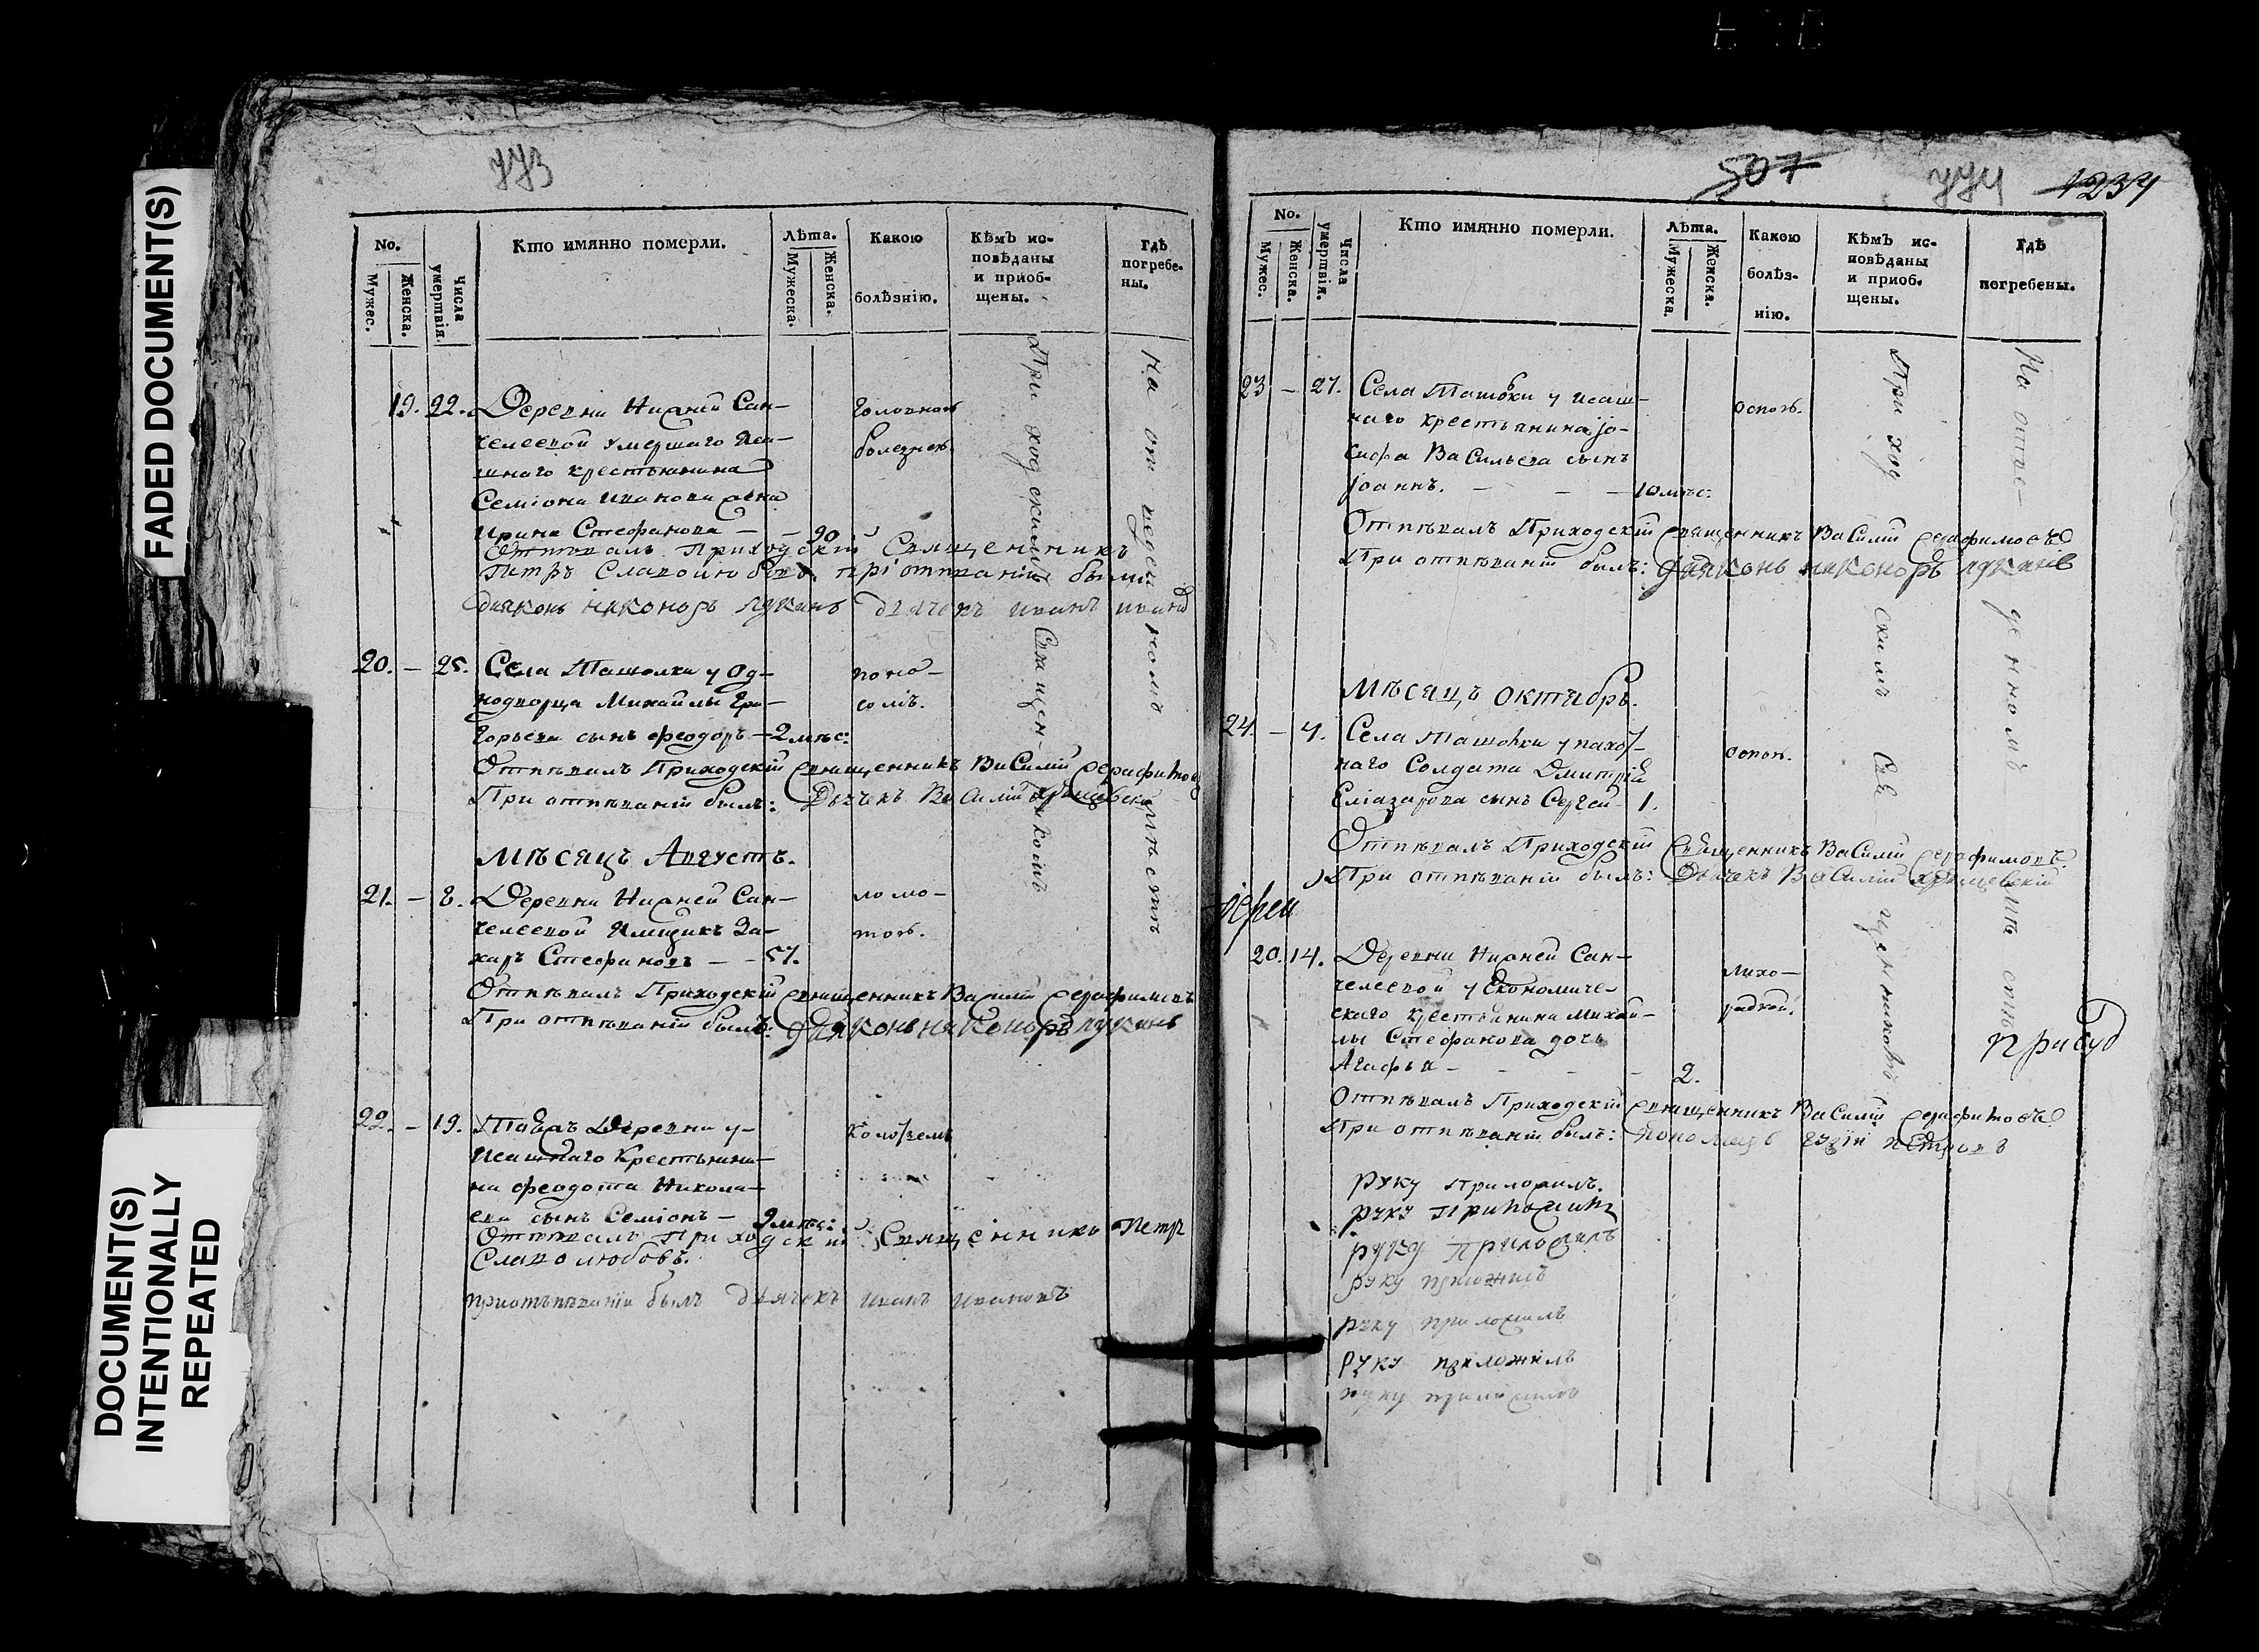 FADED DOCUMENT(S)
DOCUMENT(S)
INTENTIONALLY
REPEATED
773
No.
Мужес.
Женска.
Числа умертвія.
Кто имянно померли.
Лѣта.
Мужеска.
Женска.
Какою
болѣзнію.
Кѣмъ ис-
повѣданы
и приоб-
щены.
гдѣ
погребе-
ны.
Приходскимъ Священникомъ
На отведенномъ мѣстѣ
19. 22. Деревни Нижней Сан-
челеевой умершаго Яса-
шнаго крестьянина
Семіона Иванова жена
Ирина Стефанова — — 90
Головною
болезнею.
Отпѣвалъ Приходскій Священникъ
Петръ Славолюбовъ при отпѣваніи были
дияконъ никоноръ лукинъ дьячекъ иванъ ивановъ
20. — 25. Села Ташолки у Од-
нодворца Михайлы Гри-
горьева сынъ Феодоръ — 2 мѣс:
поно-
сомъ.
Отпѣвалъ Приходскій священникъ Василій Серафимовъ
При отпѣваніи былъ: Дьячекъ Василій Хрящевскій
Мѣсяцъ Августъ.
21. — 8. Деревни Нижней Сан-
челеевой Ямщикъ За-
харъ Стефановъ — — 57.
ломо-
тою.
Отпѣвалъ Приходскій священникъ Василій Серафимовъ
При отпѣваніи былъ: Дияконъ никоноръ лукинъ
22. — 19. Деревни у
Ясашнаго Крестьяни-
на Феодота Никола-
ева сынъ Семіонъ — 9 мѣс:
Отпѣвалъ Приходскій Священникъ Петръ
Славолюбовъ.
приотпѣваніи былъ дьячекъ иванъ ивановъ
507
774
1234
No.
Мужес.
Женска.
Числа умертвія.
Кто имянно померли.
Лѣта.
Мужеска.
Женска.
Какою
болѣз-
нію.
Кѣмъ ис-
повѣданы
и приоб.
щены.
гдѣ
погребены.
Приходскимъ Священникомъ
На отведенномъ мѣстѣ
23 — 27. Села Ташолки у ясаш-
наго крестьянина Іо-
сифа Васильева сынъ
Іоаннъ. — — — 10 мѣс:
оспою.
Отпѣвалъ Приходскій священникъ Василій Серафимовъ
При отпѣваніи былъ: Дияконъ никоноръ лукинъ
Мѣсяцъ Октябрь.
24. — 4. Села Ташолки у пахот-
наго Солдата Дмитрія
Еліазарова сынъ Сергей — 1.
оспою.
Отпѣвалъ Приходскій Священникъ Василій Серафимовъ.
При отпѣваніи былъ: Дьячекъ Василій Хрящевскій
іереи
20. 14. Деревни Нижней Сан-
челеевой у Економиче-
скаго крестьянина Михай-
лы Стефанова дочь
Агафья — — — — 2.
лихо-
радкой.
Отпѣвалъ Приходскій священникъ Василій Серафимовъ
При отпѣваніи былъ: пономарь петровъ
руку приложилъ.
руку приложилъ
руку приложилъ
руку приложилъ
руку приложилъ
руку приложилъ
руку приложилъ